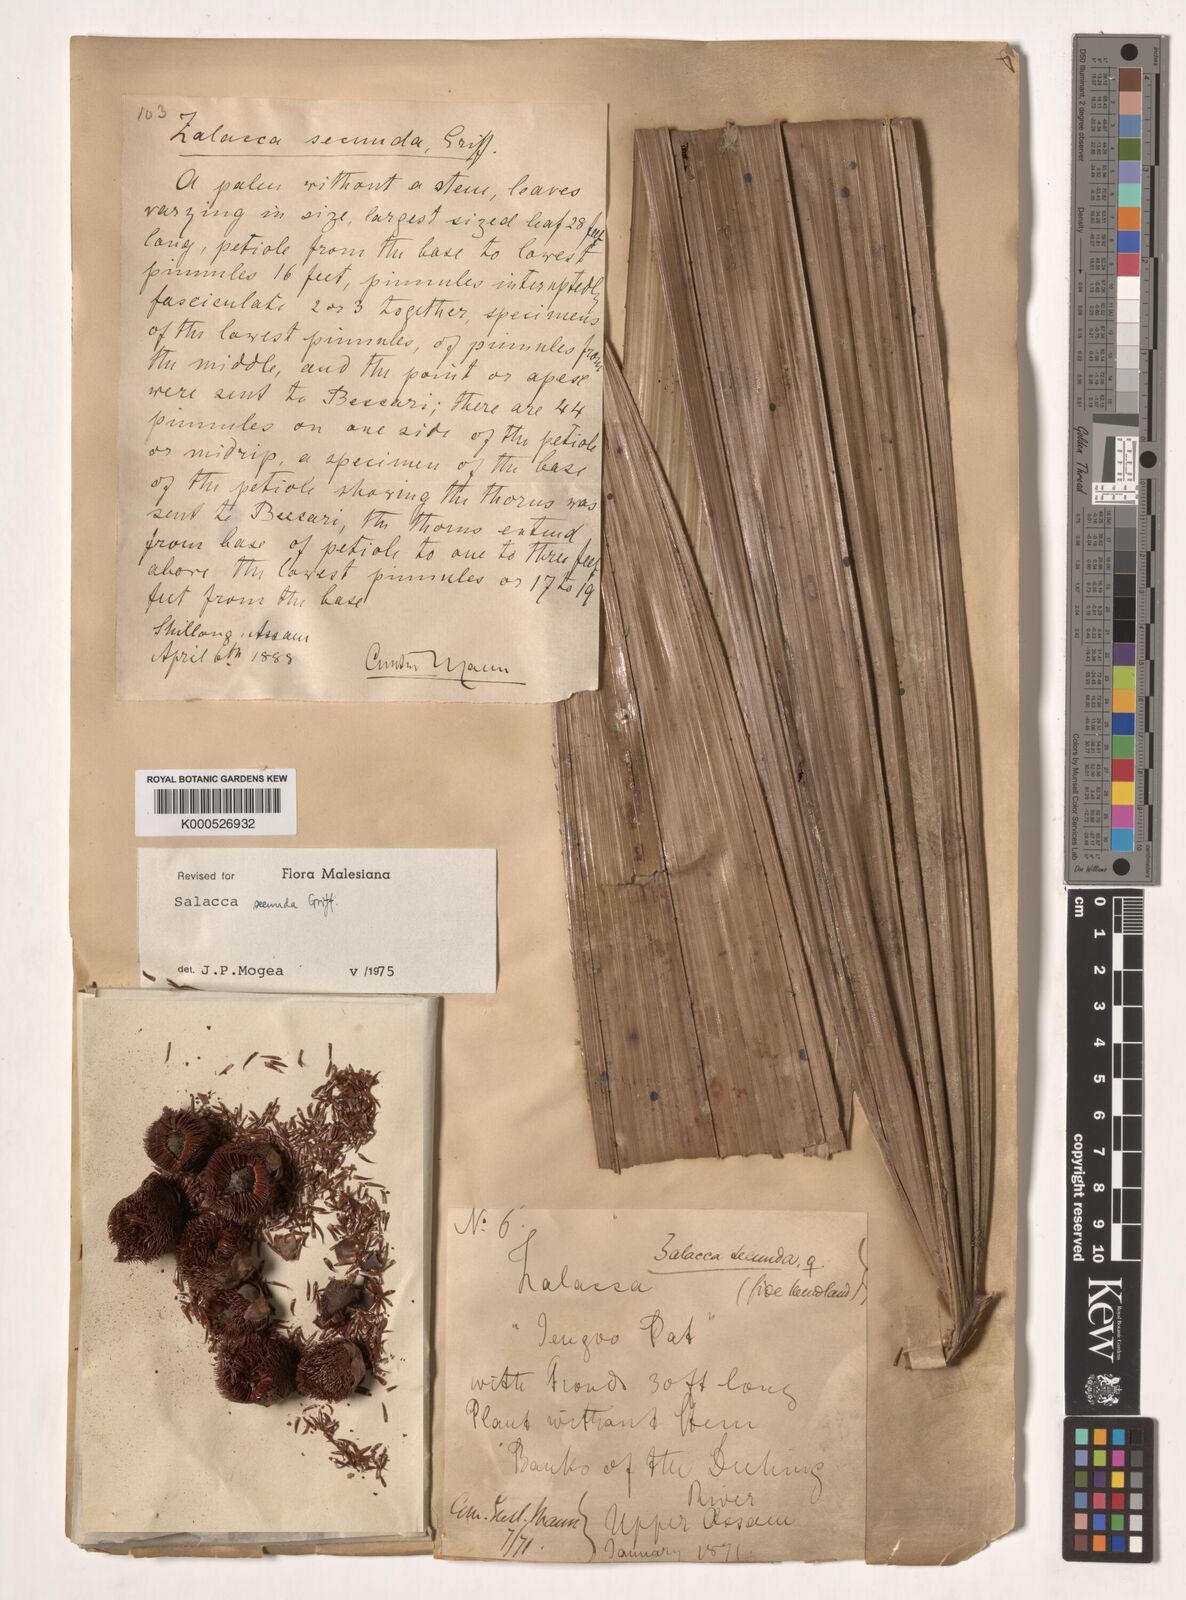 103
Zalacca secunda, Griff.
A palm without a stem, leaves
varying in size, largest sized leaf 28 feet
long, petiole from the base to lowest
pinnules 16 feet, pinnules interuptedly
fasciculate 2 or 3 together, specimens
of the lowest pinnules, of pinnules from
the middle, and the point or apex
were sent to Beccari; there are 44
pinnules on one side of the petiole
or midrip, a specimen of the base
of the petiole showing the thorns was
sent to Beccari, the thorns extend
from base of petiole to one to three feet
above the lowest pinnules or 17 to 19
feet from the base
Shillong, Assam
April 6th 1888
Gustav Mann
ROYAL BOTANIC GARDENS KEW
K000526932
Revised for Flora Malesiana
Salacca secunda Griff.
det. J.P.Mogea v /1975
No. 6.
Zalacca secunda, g.
Zalacca
(fide Wendland)
"Jengoo Pat"
with Fronds 30 ft long
Plant without Stem
Banks of the
River
Upper Assam
January 1871.
Com. Gust. Mann
7/71.
D50 Illuminant, 2 degree observer
Density
Golden Thread
Colors by Munsell Color Services Lab
Don Williams
inches
centimetres
cm
0 1 2 3 4 5 6 7 8 9 10
copyright reserved
Kew
Royal Botanic Gardens